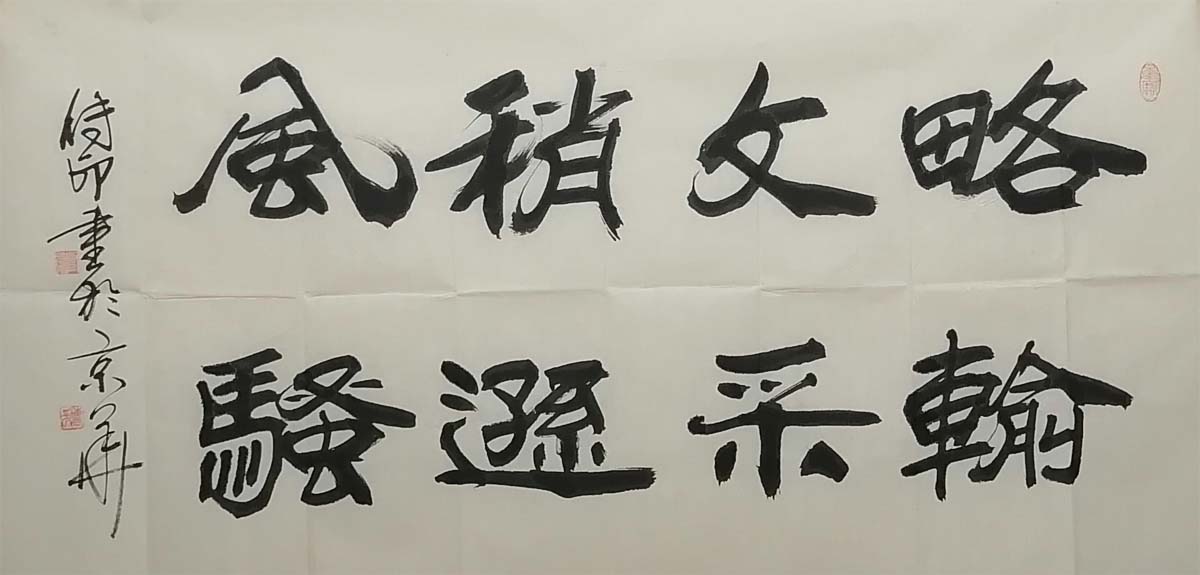 略輸
文采
稍遜
風騷
時卯書於京華